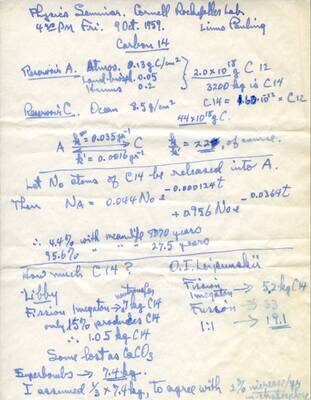 Physics Seminar. Cornell Rockefeller Lab.
4:30 PM Fri. 9 Oct. 1959. Linus Pauling
Carbon 14
Reservoir A. Atmos. 0.13 g C/cm²
Land-biosph. 0.05
Humus 0.2
2.0 × 10¹⁸ g C 12
3200 kg is C14
C14 = 1.60·10⁻¹² × C12
Reservoir C. Ocean 8.5 g/cm²
44×10¹⁸ g C
A k = 0.035 yr⁻¹ C
k' = 0.0016 yr⁻¹
k/k' = × 22, of course.
Let N₀ atoms of C14 be released into A.
Then N_A = 0.044 N₀ e^-0.000124t
+ 0.956 N₀ e^-0.0364t
∴ 4.4% with mean life 8070 years
95.6% " " " 27.5 years
How much C14? O. I. Leipunskii
Libby
Fission 1 megaton → 7 kg C14
only 15% produces C14
∴ 1.05 kg C14
Some lost as CaCO₃
Fission 1 megaton → 5.2 kg C14
Fusion → 33
1:1 → 19.1
Superbombs → 7.4 kg.
I assumed 1/3 × 7.4 kg, to agree with 2% increase/yr